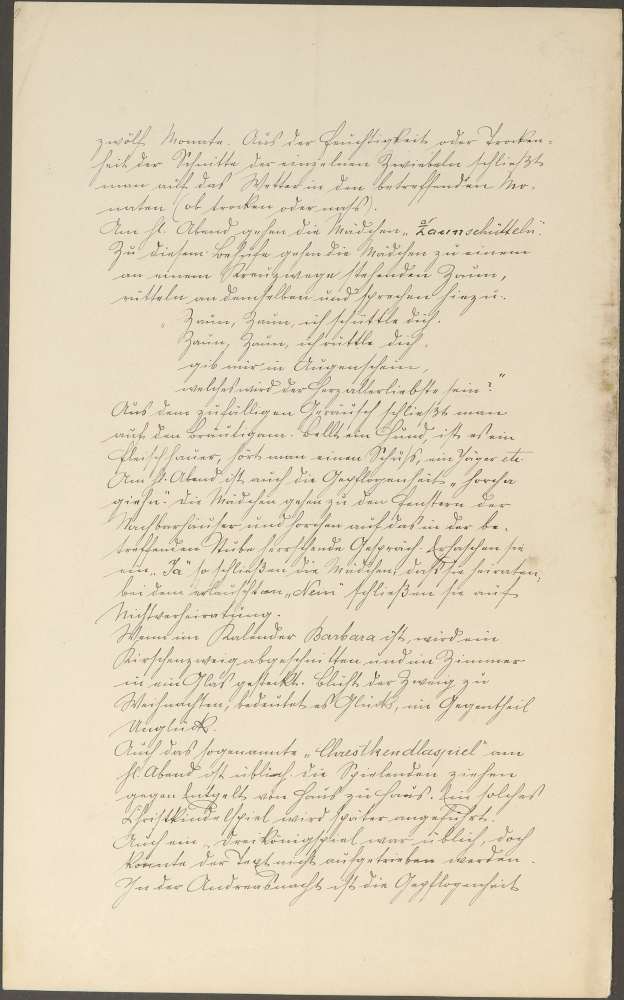 zwölf Monate. Aus der Feuchtigkeit oder Trocken-
heit der Schnitte der einzelnen Zwiebeln schließt
man auf das Wetter in den betreffenden Mo-
naten (ob trocken oder naß).
Am hl. Abend gehen die Mädchen „Zaunschütteln".
Zu diesem Behufe gehen die Mädchen zu einem
an einem Kreuzwege stehenden Zaun,
rütteln an demselben und sprechen hiezu:
„Zaun, Zaun, ich schüttle dich.
Zaun, Zaun, ich rüttle dich,
gib mir in Augenschein,
welches wird der Herzallerliebste sein?"
Aus dem zufälligen Geräusch schließt man
auf den Bräutigam. Bellt ein Hund, ist es ein
Fleischhauer, hört man einen Schuß, ein Jäger etc.
Am hl. Abend ist auch die Gepflogenheit „horcha
giehn". Die Mädchen gehen zu den Fenstern der
Nachbarhäuser und horchen auf das in der be-
treffenden Stube herrschende Gespräch. Erhaschen sie
ein „Ja" so schließen die Mädchen, daß sie heiraten,
bei dem erlauschten „Nein" schließen sie auf
Nichtverheiratung.
Wenn im Kalender Barbara ist, wird ein
Kirschenzweig abgeschnitten und im Zimmer
in ein Glas gesteckt. Blüht der Zweig zu
Weihnachten, bedeutet es Glück, im Gegenteil
Unglück.
Auch das sogenannte „Chrestkendlaspiel" am
hl. Abend ist üblich. Die Spielenden ziehen
gegen Entgelt von Haus zu Haus. Ein solches
Christkindelspiel wird später angeführt.
Auch ein Dreikönigspiel war üblich, doch
konnte der Text nicht aufgetrieben werden.
In der Andreasnacht ist die Gepflogenheit